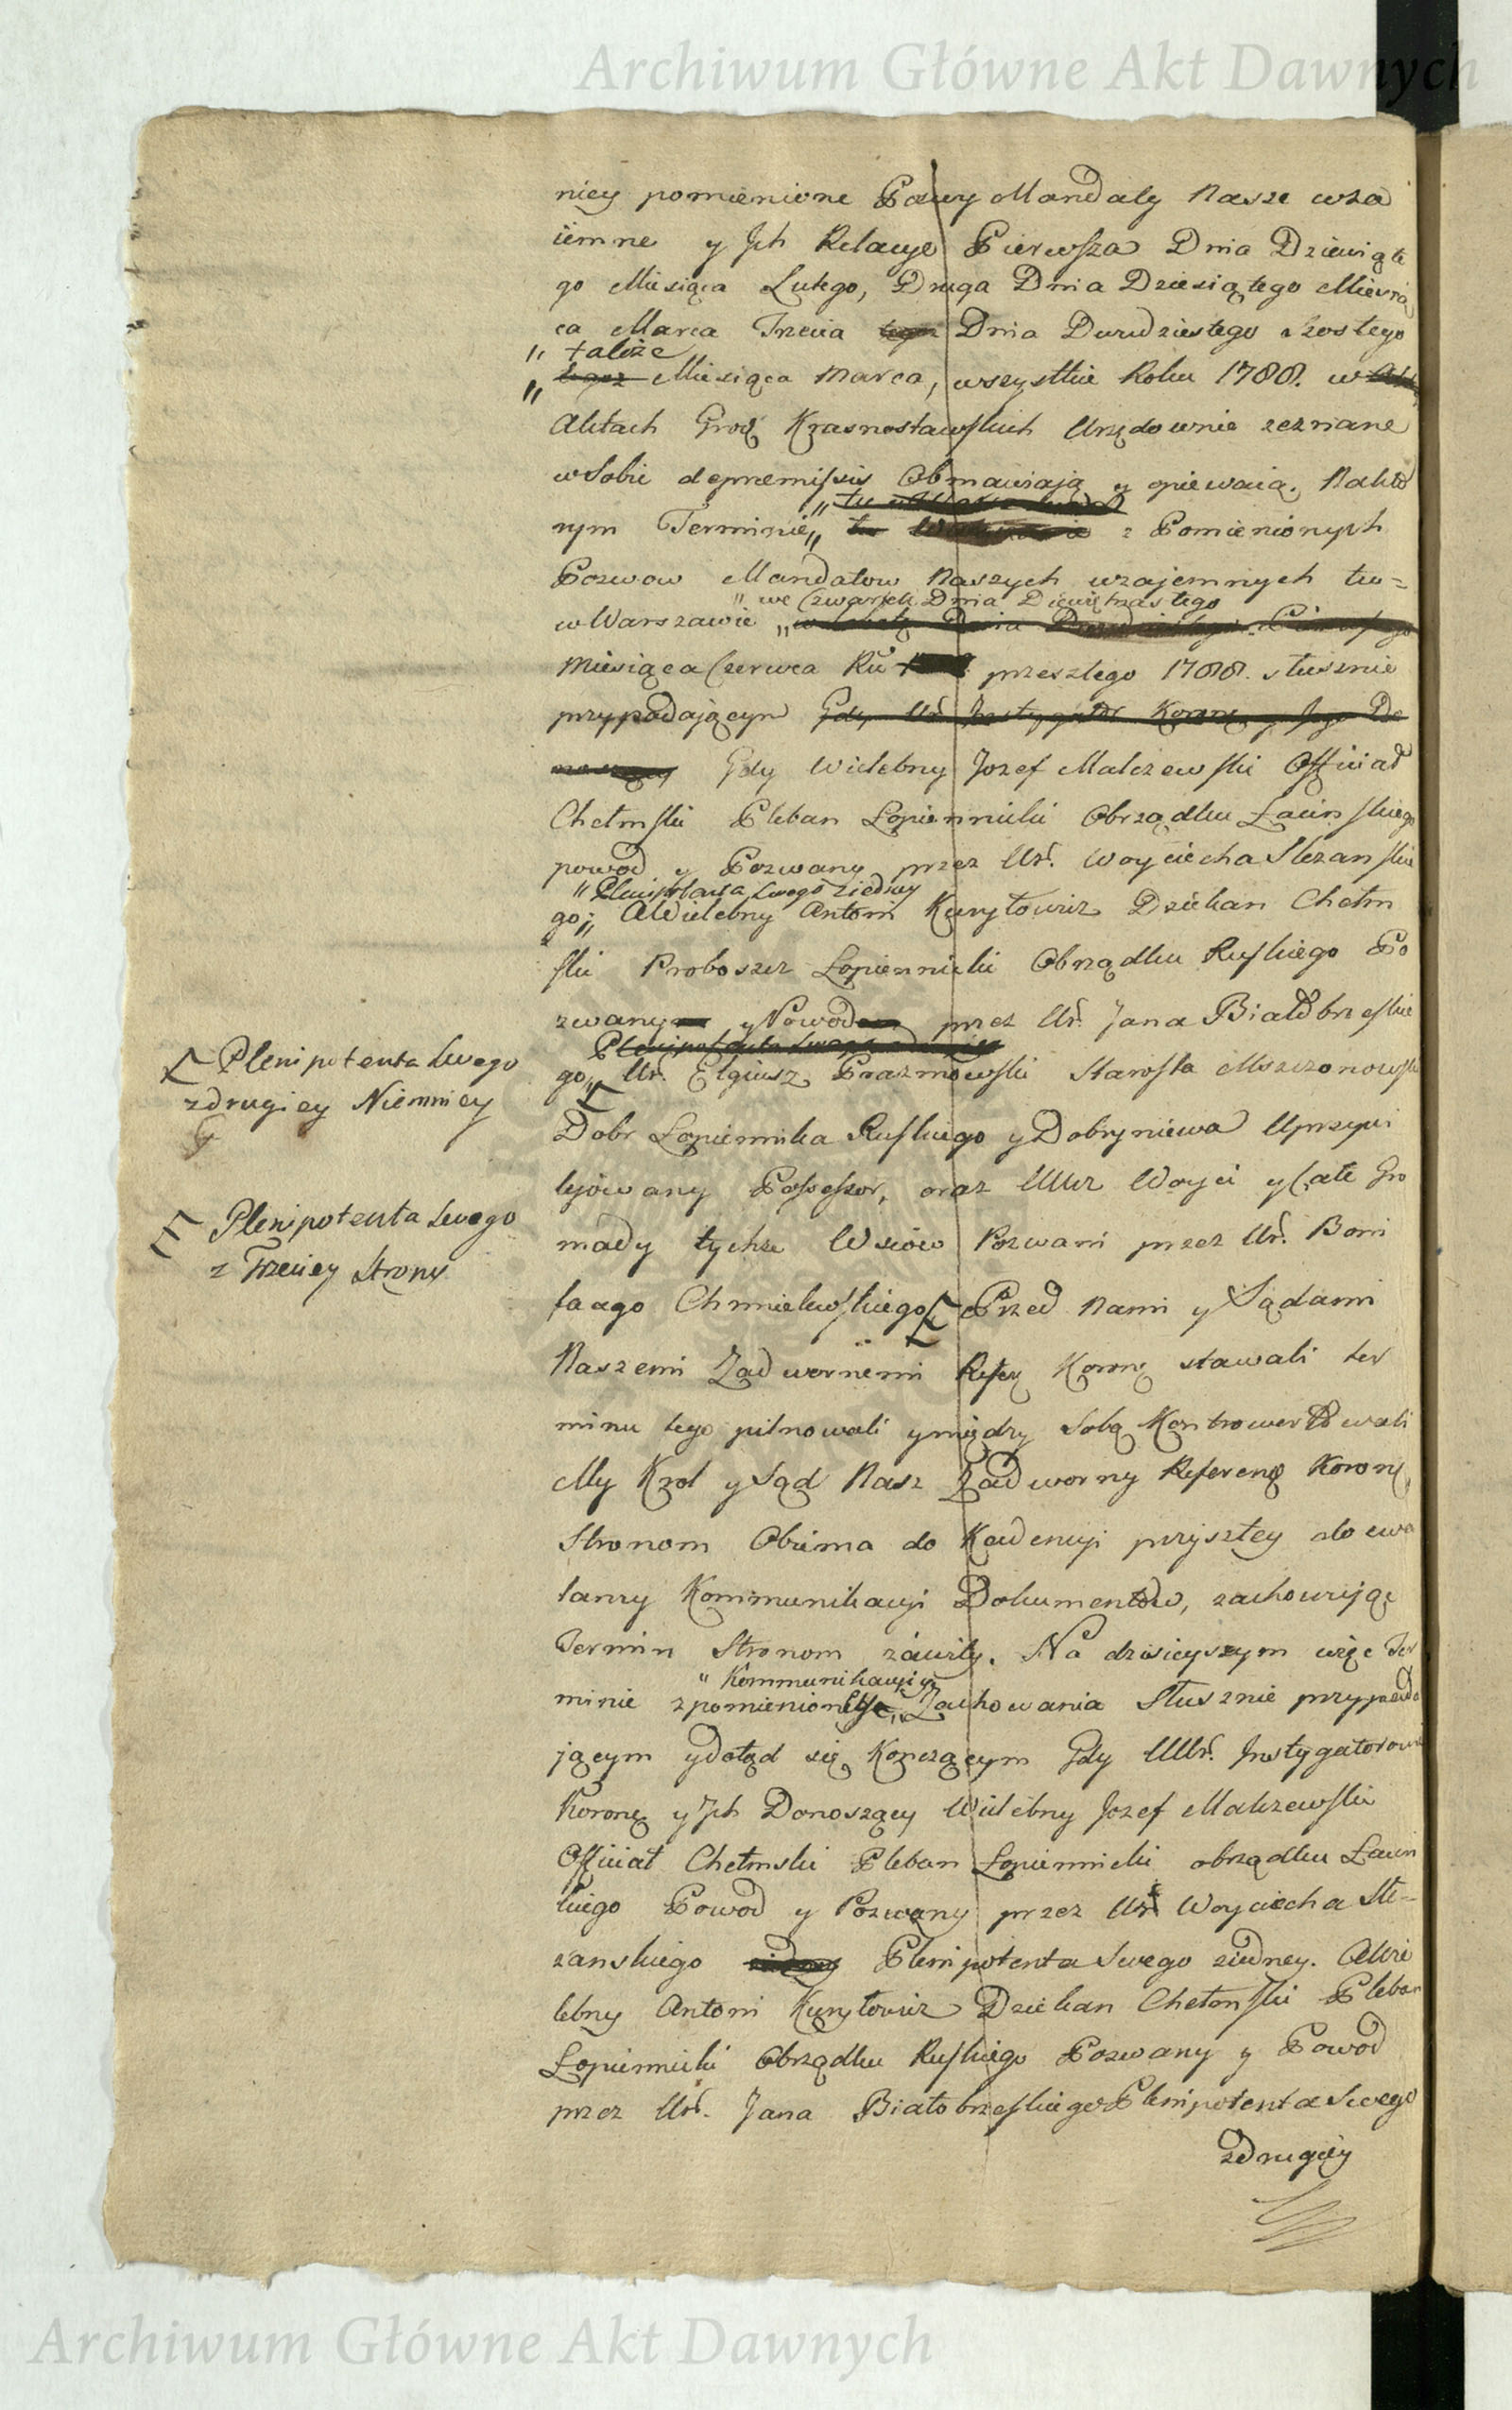 Archiwum Główne Akt Dawnych
niey pomienione Pozwy Mandaty Nasze wza
iemne y Jch Relacye Pierwsza Dnia Dziewiąte
go Miesiąca Lutego, Druga Dnia Dziesiątego Miesią
ca Marca Trzecia tegoż Dnia Dwudziestego Szostego
" także
" tegoż Miesiąca Marca, wszystkie Roku 1788. w
Aktach Grodź Krasnostawskich Urzędownie zeznane
w Sobie de premissis Obmawiają y opiewaią. Na któ
rym Terminie " tu z Pomienionych
Pozwow Mandatow Naszych wzajemnych tu=
" we Czwartek Dnia Dziewiętnastego
w Warszawie "
Miesiąca Czerwca Ru przeszłego 1788. słusznie
przypadającym Gdy Ur. Instygator Koronę y Jego Do
noszący Gdy Wielebny Jozef Malczewski Officiał
Chełmski Pleban Łopiennicki Obrządku Łacinskiego
powod y Pozwany przez Ur. Woyciecha Slezanskie
" Plenipotenta Swego z iedney
go; " A Wielebny Antoni Kuryłowicz Dziekan Chełm
ski Proboszcz Łopiennicki Obrządku Ruskiego Po
zwany y Powod przez Ur. Jana Białobrzeskie
Plenipotenta Swego
go " Ur. Eligiusz Prazmowski Starosta Mszczonowski
Plenipotenta Swego
z drugiey Niemniey
Dobr Łopiennika Ruskiego y Dobryniewa Uprzywi
lejowany Possessor, oraz UUcz Woyci y Całe Gro
Plenipotenta Swego
z Trzeciey Strony
mady tychże Wsiow Pozwani przez Ur. Boni
facego Chmielewskiego Przed Nami y Sądami
Naszemi Zadwornemi Refer Koronę stawali ter
minu tego pilnowali y między Sobą Kontrowertowali
My Krol y Sąd Nasz Zadworny Referenę Koronę,
Stronom Obiema do Kadencyi przyszłey do ewa
tancy Kommunikacyi Dokumentow, zachowując
Termin Stronom zawity. Na dzisieyszym więc Ter
" Kommunikacyi y
minie z pomienioney " Zachowania Słusznie przypada
jącym y dotąd się Kończącym Gdy UUr. Instygatorowie
Koronę y Jch Donoszący Wielebny Jozef Malczewski
Officiał Chełmski Pleban Łopiennicki obrządku Łacin
skiego Powod y Pozwany przez Ur Woyciecha Sle-
zanskiego Plenipotenta Swego z iedney. A Wie
lebny Antoni Kuryłowicz Dziekan Chełmski Pleban
Łopiennicki Obrządku Ruskiego Pozwany y Powod
przez Ur. Jana Białobrzeskiego Plenipotenta Swego
z drugiey
Archiwum Główne Akt Dawnych